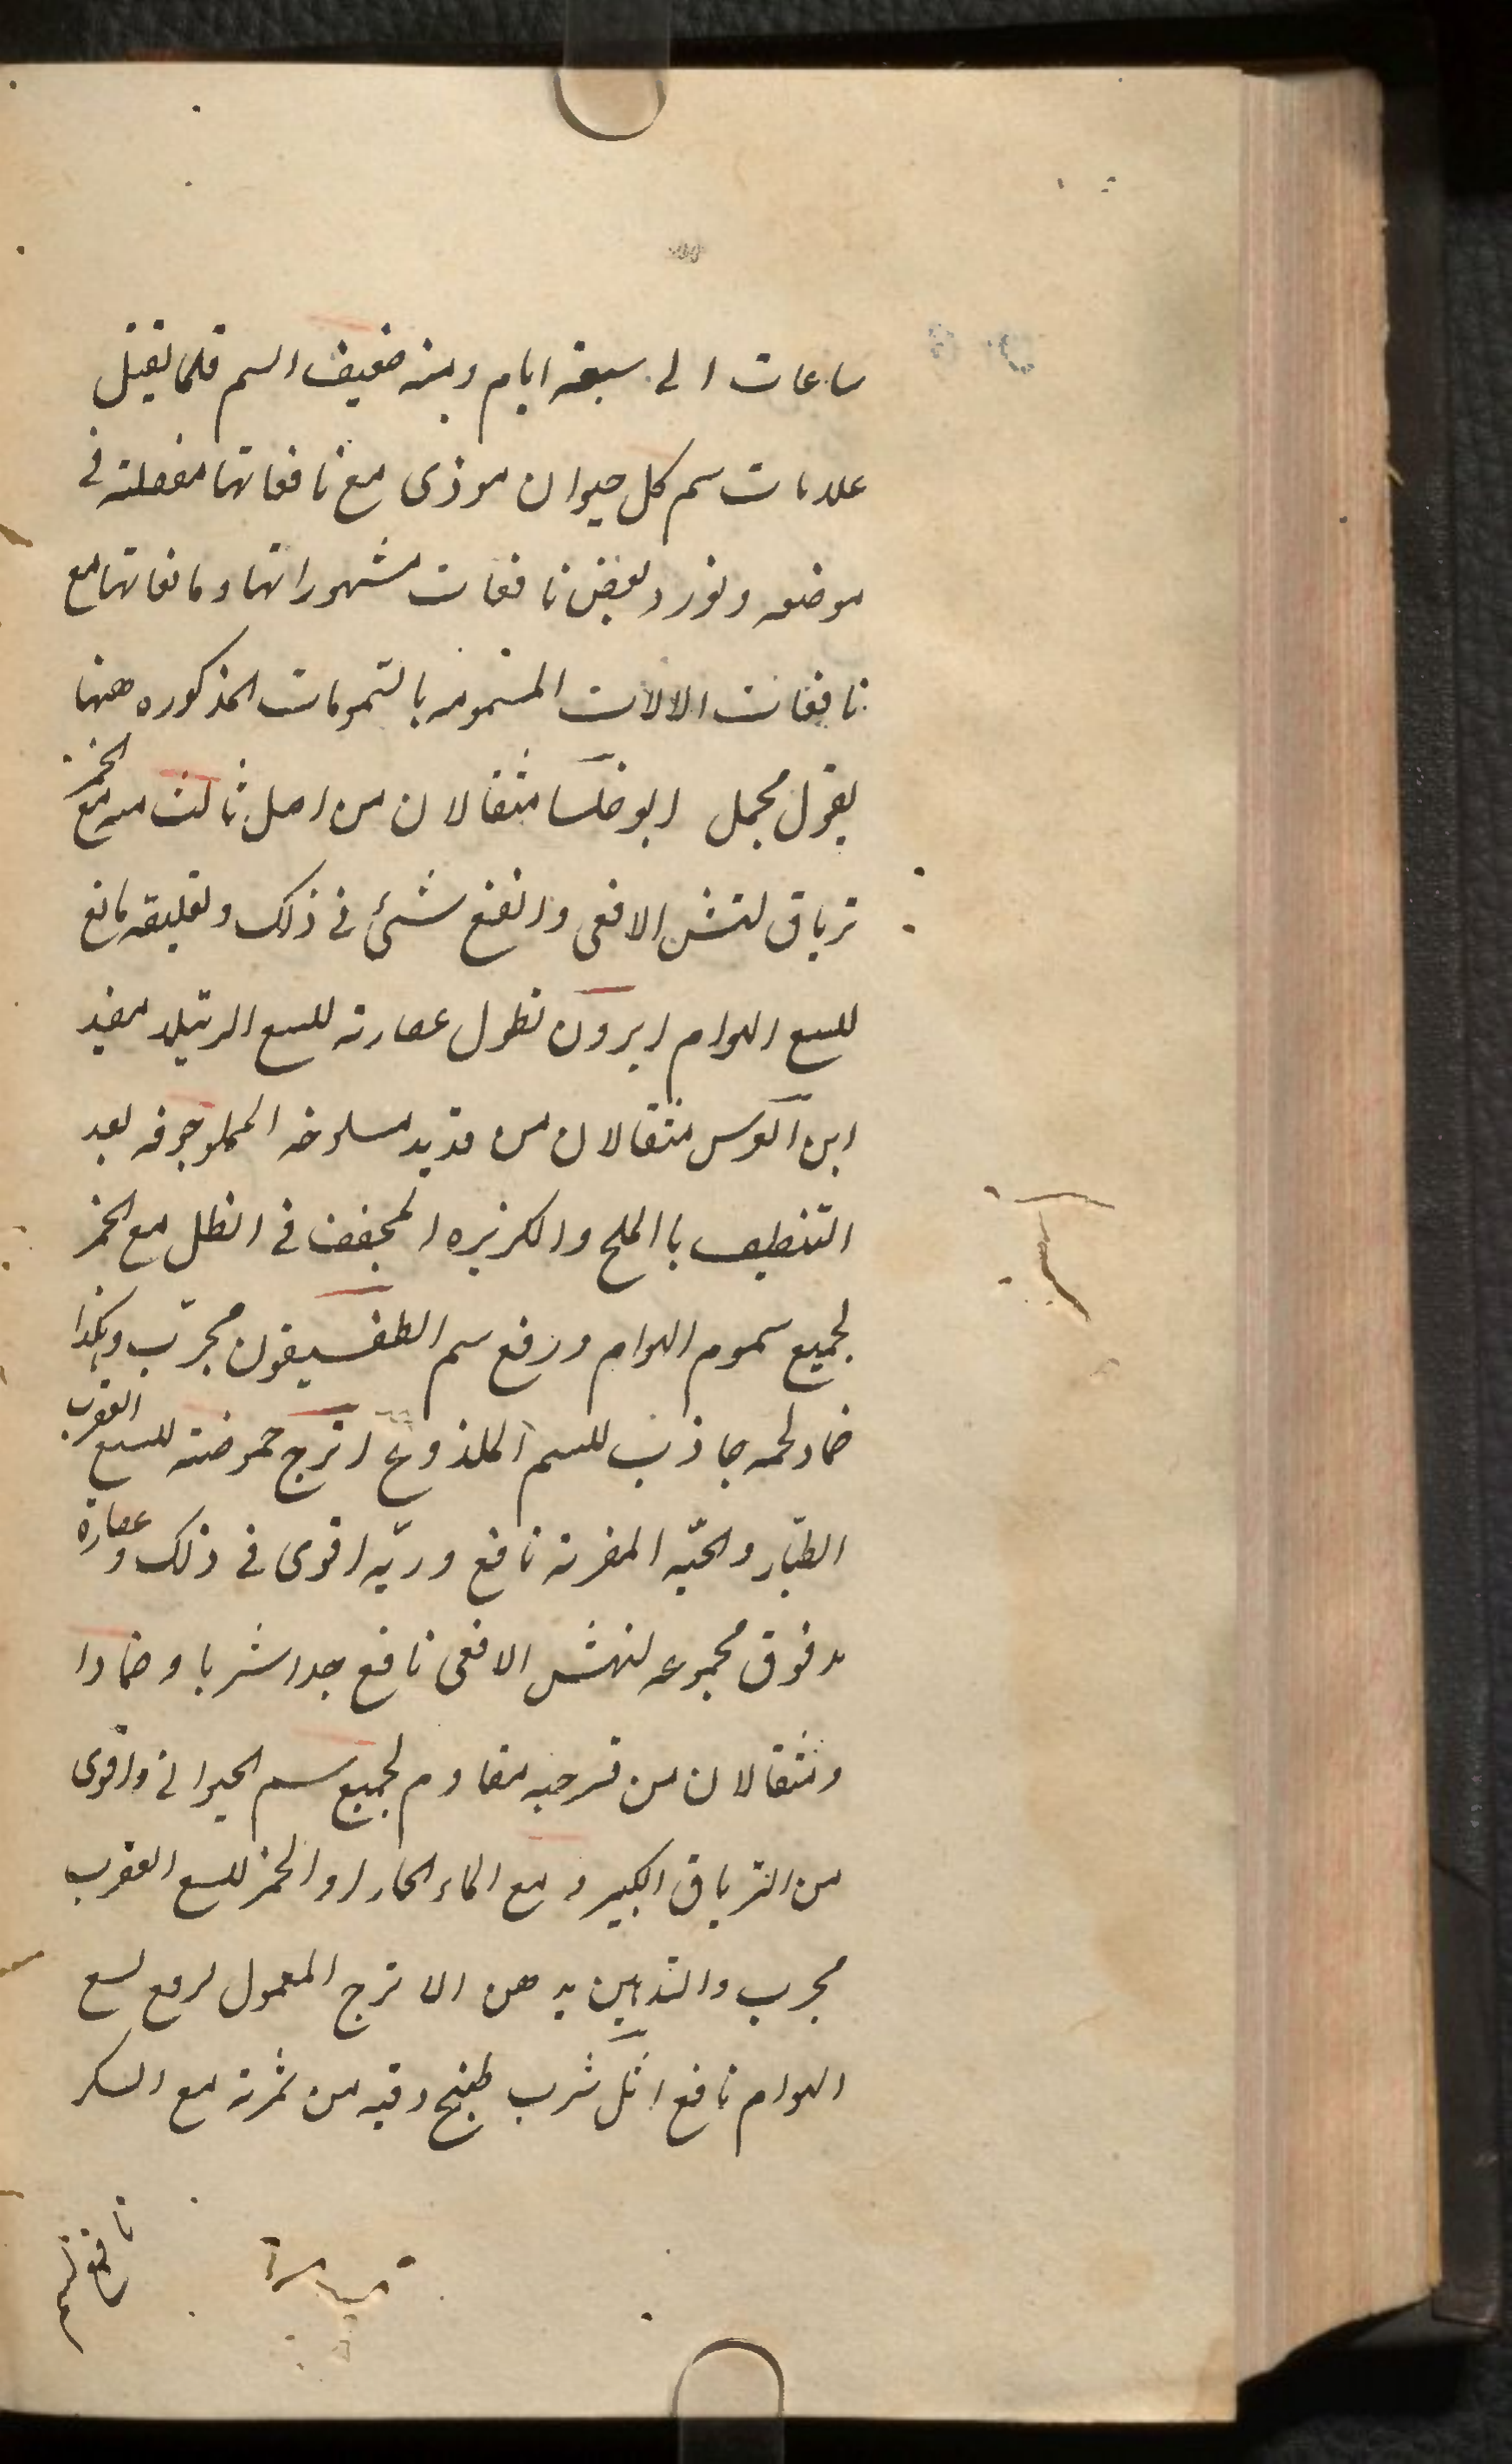 ساعات الى سبعة ايام ومنه ضعيف السم قلما يقتل
علامات سم كل حيوان موذى مع نافعاتها مفصلة فى
موضعه ونورد بعض نافعات مشهوراتها ومانعاتها مع
نافعات الالات المسمومه بالسمومات المذكوره ههنا
بقول مجمل ابوخلسا مثقالان من اصل ثالث منه مع الخمر
ترياق لنهش الافعى وانفع شئ فى ذلك وتعليقه مانع
للسع الهوام ابرون نطول عصارته للسع الرتيلا مفيد
ابن اكوس مثقالان من قديد مسلوخه المملو جوفه بعد
التنظيف با الملح والكزبره المجفف فى الظل مع الخمر
لجميع سموم الهوام ورفع سم الطفسيقون مجرّب وهكذا
ضماد لحمه جاذب للسم الملذوع اترج حموضته للسع العقرب
الطيّار والحيّه المقرنة نافع وربّه اقوى فى ذلك وعصارة
مدقوق مجموعه لنهش الافعى نافع جدا شربا وضمادا
ومثقالان من حبه مقاوم لجميع سم الحيوانى واقوى
من الترياق الكبير ومع الماء الحار او الخمر للسع العقرب
مجرب والتدهين بدهن الاترج المعمول لرفع لسع
الهوام نافع اثل شرب طبيخ وقيه من ثمرته مع السكر
نافع